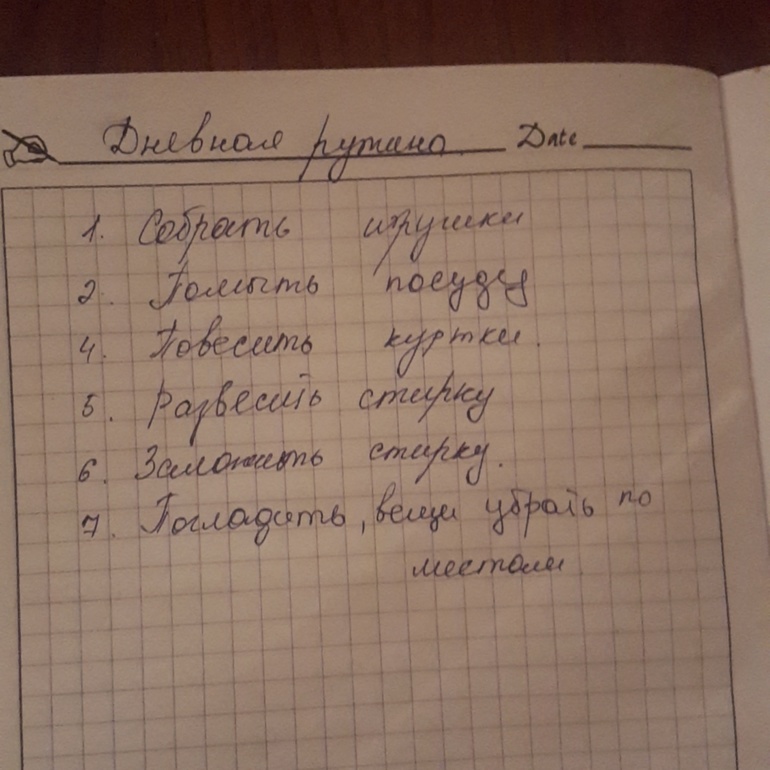 Дневная рутина Date
1. Собрать игрушки
2. Помыть посуду
4. Повесить куртки.
5. Развесить стирку
6. Заложить стирку.
7. Погладить, вещи убрать по
местам